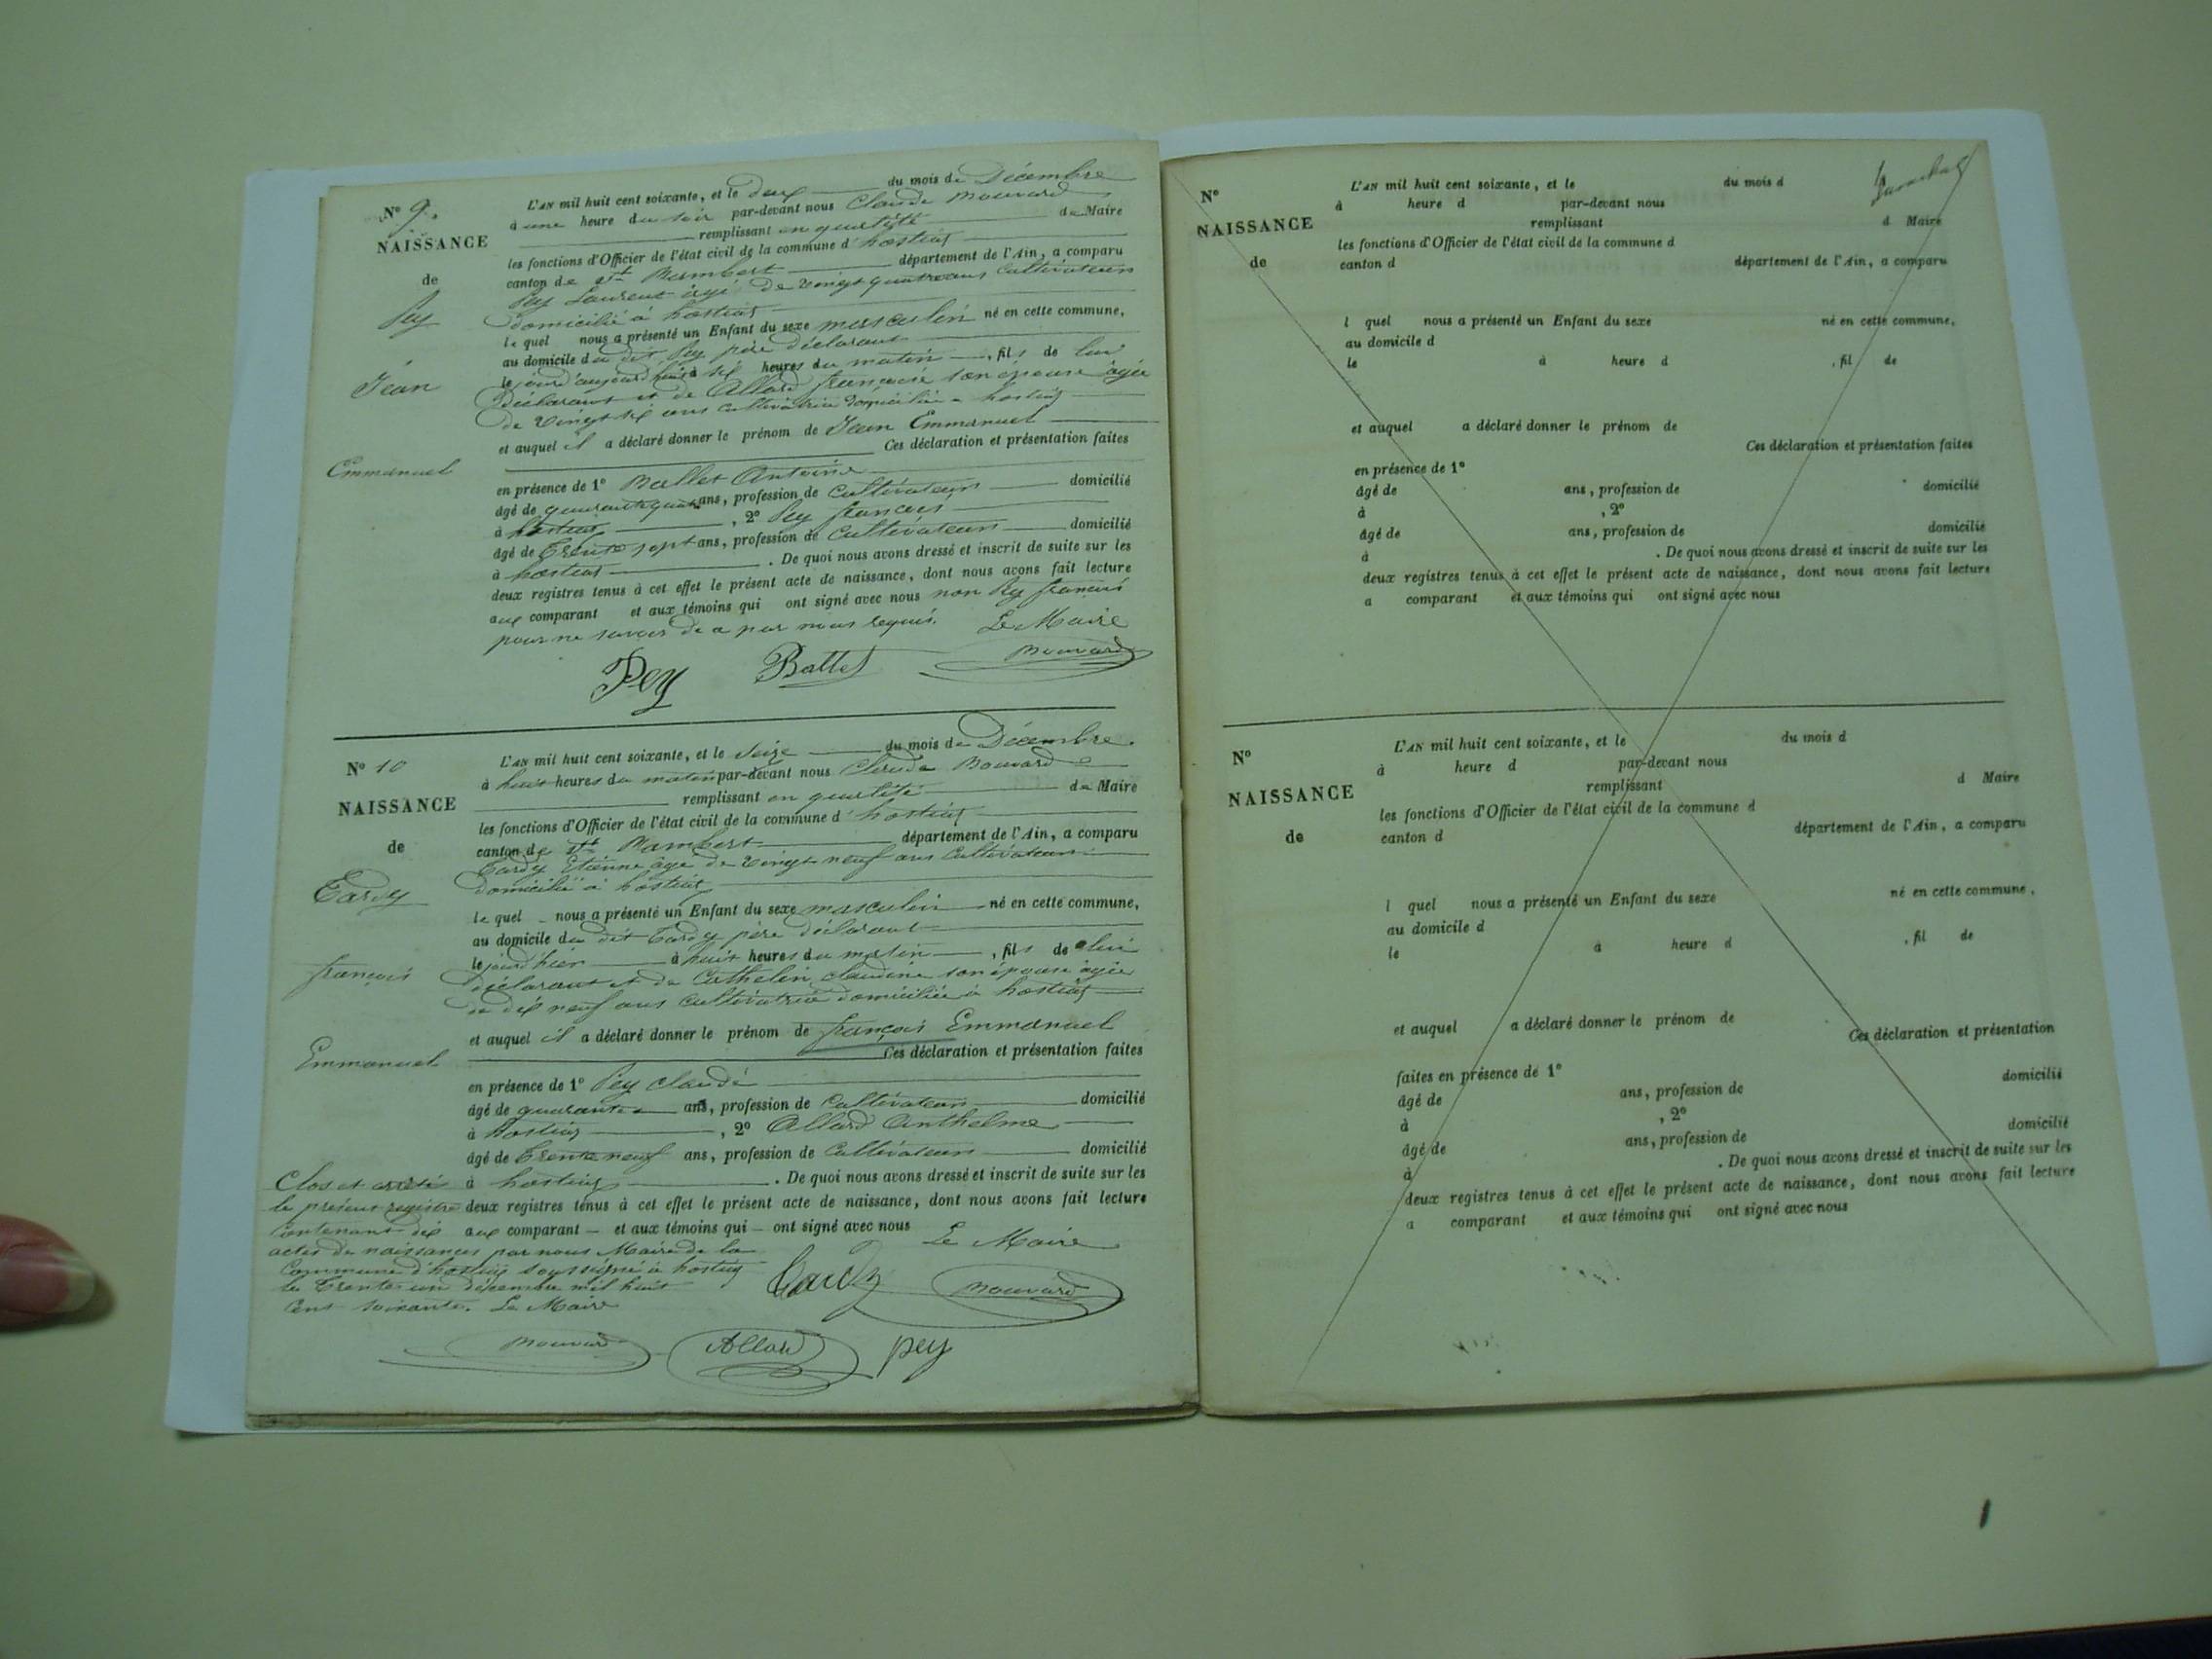 N° 9.
NAISSANCE
de
Pey
Jean
Emmanuel
L'AN mil huit cent soixante, et le deux du mois de Décembre
à une heure du soir par-devant nous Claude Bouvard
remplissant en qualité de Maire
les fonctions d'Officier de l'état civil de la commune d'hostias
canton de st Rambert département de l'Ain, a comparu
Pey Laurent âgé de vingt quatre ans Cultivateur
domicilié à hostias
le quel nous a présenté un Enfant du sexe masculin né en cette commune,
au domicile du dit Pey père déclarant
le jour d'aujourd'hui à six heures du matin, fils de lui
déclarant et de Allard françoise son épouse âgée
de vingt six ans cultivatrice domiciliée à hostias
et auquel il a déclaré donner le prénom de Jean Emmanuel
Ces déclaration et présentation faites
en présence de 1° Ballet Antoine
âgé de quarante quatre ans, profession de Cultivateur domicilié
à hostias, 2° Pey françois
âgé de Trente sept ans, profession de Cultivateur domicilié
à hostias. De quoi nous avons dressé et inscrit de suite sur les
deux registres tenus à cet effet le présent acte de naissance, dont nous avons fait lecture
aux comparant et aux témoins qui ont signé avec nous non Pey françois
pour ne savoir de a par nous requis. Le Maire
Pey Ballet Bouvard
N° 10
NAISSANCE
de
Tardy
françois
Emmanuel
L'AN mil huit cent soixante, et le Seize du mois de Décembre
à huit heures du matin par-devant nous Claude Bouvard
remplissant en qualité de Maire
les fonctions d'Officier de l'état civil de la commune d'hostias
canton de st Rambert département de l'Ain, a comparu
Tardy Etienne âgé de vingt neuf ans Cultivateur
domicilié à hostias
le quel nous a présenté un Enfant du sexe masculin né en cette commune,
au domicile du dit Tardy père déclarant
le jour d'hier à huit heures du matin, fils de lui
déclarant et de Cathelin claudine son épouse âgée
de dix neuf ans Cultivatrice domiciliée à hostias
et auquel il a déclaré donner le prénom de françois Emmanuel
Ces déclaration et présentation faites
en présence de 1° Pey claude
âgé de quarante ans, profession de Cultivateur domicilié
à hostias, 2° Allard Anthelme
âgé de Trente neuf ans, profession de Cultivateur domicilié
à hostias. De quoi nous avons dressé et inscrit de suite sur les
deux registres tenus à cet effet le présent acte de naissance, dont nous avons fait lecture
aux comparant et aux témoins qui ont signé avec nous Le Maire
Clos et arrêté
le présent registre
contenant dix
actes de naissances par nous Maire de la
Commune d'hostias soussigné à hostias
le Trente un décembre mil huit
cent soixante. Le Maire
Tardy Bouvard
Bouvard Allard pey
N°
NAISSANCE
de
L'AN mil huit cent soixante, et le du mois d
à heure d par-devant nous
remplissant d Maire
les fonctions d'Officier de l'état civil de la commune d
canton d département de l'Ain, a comparu
l quel nous a présenté un Enfant du sexe né en cette commune,
au domicile d
le à heure d , fil de
et auquel a déclaré donner le prénom de
Ces déclaration et présentation faites
en présence de 1°
âgé de ans, profession de domicilié
à , 2°
âgé de ans, profession de domicilié
à . De quoi nous avons dressé et inscrit de suite sur les
deux registres tenus à cet effet le présent acte de naissance, dont nous avons fait lecture
a comparant et aux témoins qui ont signé avec nous
N°
NAISSANCE
de
L'AN mil huit cent soixante, et le du mois d
à heure d par-devant nous
remplissant d Maire
les fonctions d'Officier de l'état civil de la commune d
canton d département de l'Ain, a comparu
l quel nous a présenté un Enfant du sexe né en cette commune,
au domicile d
le à heure d , fil de
et auquel a déclaré donner le prénom de
Ces déclaration et présentation
faites en présence de 1°
âgé de ans, profession de domicilié
à , 2°
âgé de ans, profession de domicilié
à . De quoi nous avons dressé et inscrit de suite sur les
deux registres tenus à cet effet le présent acte de naissance, dont nous avons fait lecture
a comparant et aux témoins qui ont signé avec nous